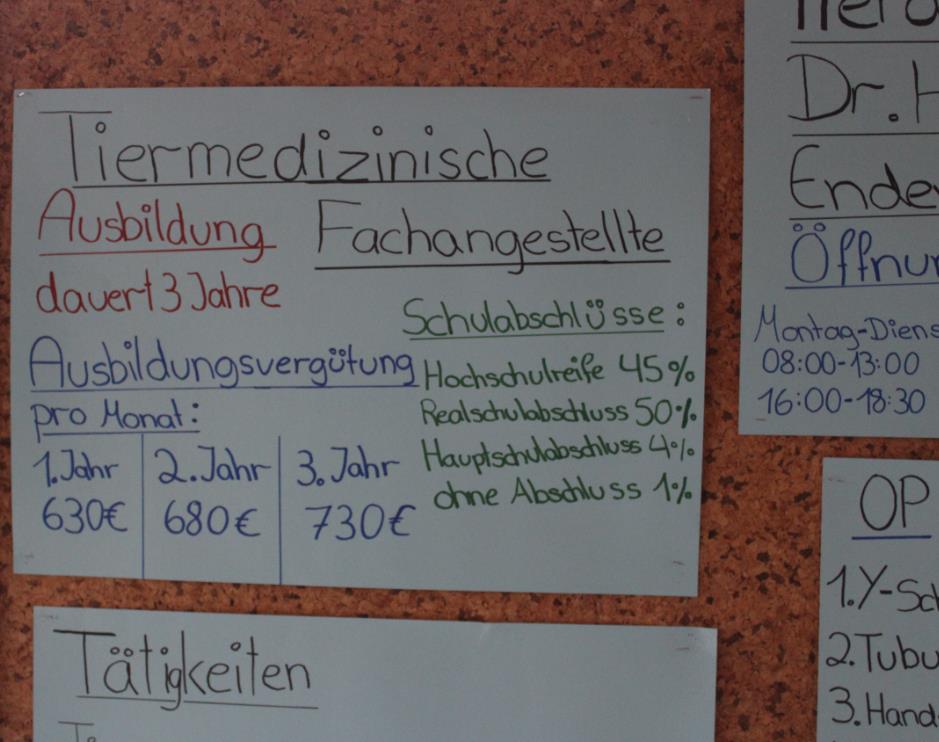 Tiermedizinische
Fachangestellte
Ausbildung
dauert 3 Jahre
Ausbildungsvergütung
pro Monat:
1. Jahr 2. Jahr 3. Jahr
630€ 680€ 730€
Schulabschlüsse:
Hochschulreife 45%
Realschulabschluss 50%
Hauptschulabschluss 4%
ohne Abschluss 1%
Tätigkeiten
Dr. H
Ende
Öffnun
Montag-Diens
08:00-13:00
16:00-18:30
OP
1. Y-Sc
2. Tubu
3. Hand